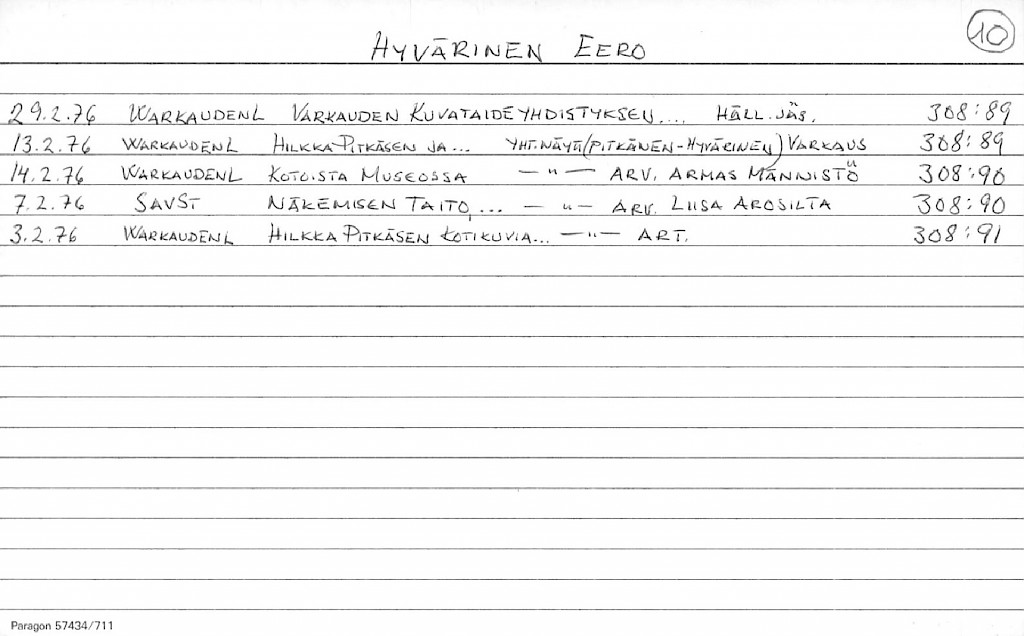 10
HYVÄRINEN EERO
29.2.76 WARKAUDENL VARKAUDEN KUVATAIDEYHDISTYKSEN.... HALL.JÄS. 308:89
13.2.76 WARKAUDENL HILKKA PITKÄSEN JA... YHT.NÄYT(PITKÄNEN-HYVÄRINEN) VARKAUS 308:89
14.2.76 WARKAUDENL KOTOISTA MUSEOSSA — " — ARV. ARMAS MÄNNISTÖ 308:90
7.2.76 SAVST NÄKEMISEN TAITO,... — " — ARV. LIISA AROSILTA 308:90
3.2.76 WARKAUDENL HILKKA PITKÄSEN KOTIKUVIA... — " — ART. 308:91
Paragon 57434/711